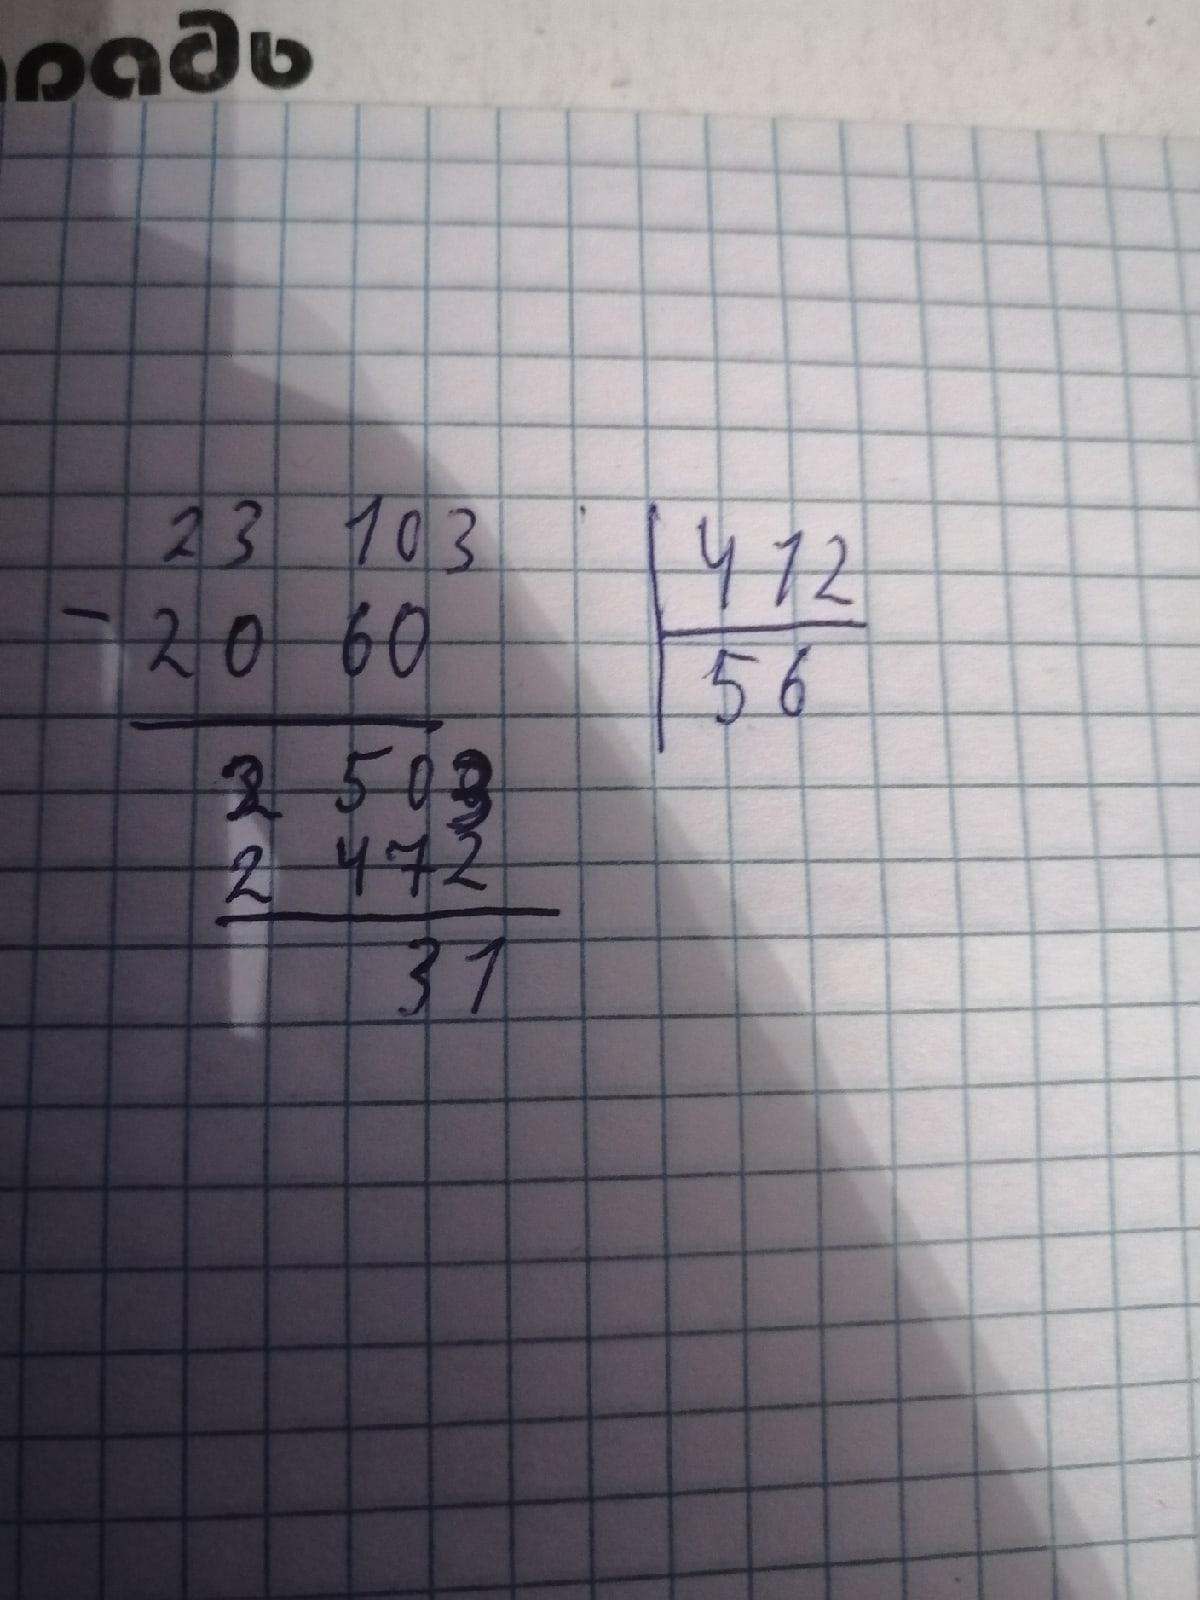 традь
23 103 412
- 20 60 56
2 503
2 472
31